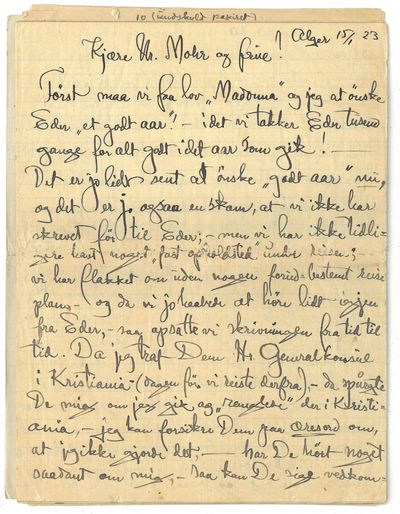 10 (undskyld papiret)
Alger 15/1 23
Kjære Hr. Mohr og frue!
Først maa vi faa lov „Madonna" og jeg at ønske
Eder „et godt aar"! – idet vi takker Eder tusend
gange for alt godt i det aar som gik! –
Det er jo lidt sent at ønske „godt aar" nu,
og det er jo ogsaa en skam, at vi ikke har
skrevet før til Eder; – men vi har ikke tidli-
gere havt noget „fast opholdsted" under reisen;
vi har flakket om uden nogen forud-bestemt reise
plan, – og da vi jo haabede at höre lidt igjen
fra Eder, – saa opsatte vi skrivningen fra tid til
tid. Da jeg traf Dem Hr. Generalkonsul
i Kristiania – (dagen før vi reiste derfra), – da spurgte
De mig om jeg gik og „ranglede" der i Kristi-
ania, – jeg kan forsikre Dem paa æresord om,
at jeg ikke gjorde det; – har De hört noget
saadant om mig, – saa kan De vedkom-